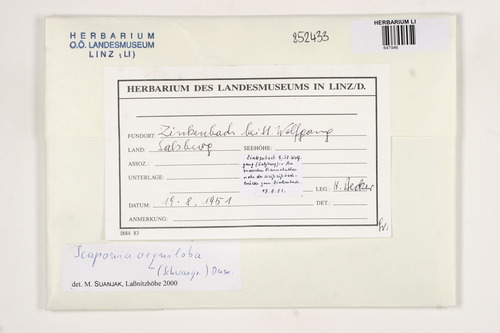 HERBARIUM
O.Ö. LANDESMUSEUM
LINZ (LI)
852433
HERBARIUM LI
647946
HERBARIUM DES LANDESMUSEUMS IN LINZ/D.
FUNDORT: Zinkenbach bei St. Wolfgang
LAND: Salzburg SEEHÖHE:
ASSOZ.:
UNTERLAGE:
Zinkenbach b. St. Wolf-
gang (Salzburg)
LEG.: H. Becker
DATUM: 19. 8. 1951 DET.:
ANMERKUNG:
J884 83
Scapania aequiloba
(Schwaegr.) Dum.
det. M. SUANJAK, Laßnitzhöhe 2000